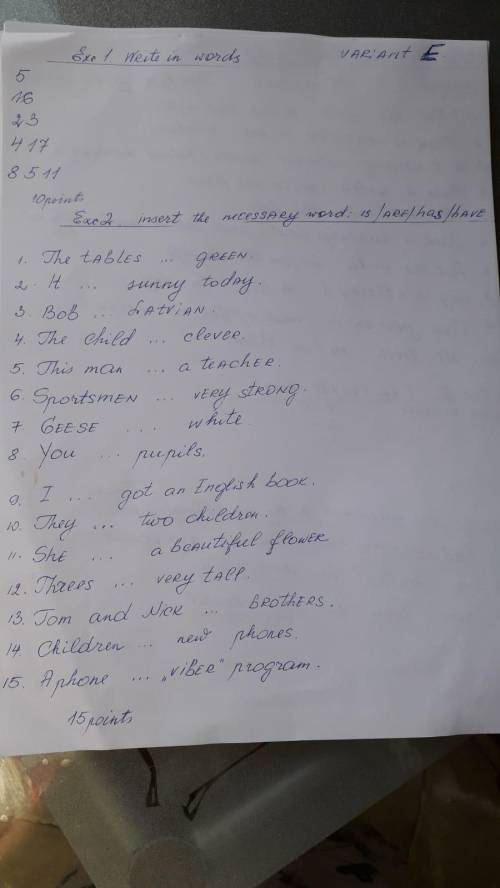 Exe 1. Write in words VARiAnt E
5
16
23
417
8 511
10points
Exe2. insert the necessary word: is/ARE/has/hAVE
1. The tABLES ... gREEN.
2. It ... sunny today.
3. BOB ... LATViAN.
4. The child ... clever.
5. This man ... a teACHER.
6. SportsmEN ... vERy StRONg.
7. GEESE .... white.
8. You ... pupils.
9. I ... got an English book.
10. They ... two children.
11. SHE ... a bEAUtiful flOWER
12. Threes ... very tall.
13. Tom and Nick ... BROthERS.
14. Children ... new phones.
15. A phone ... „ViBER" program.
15points